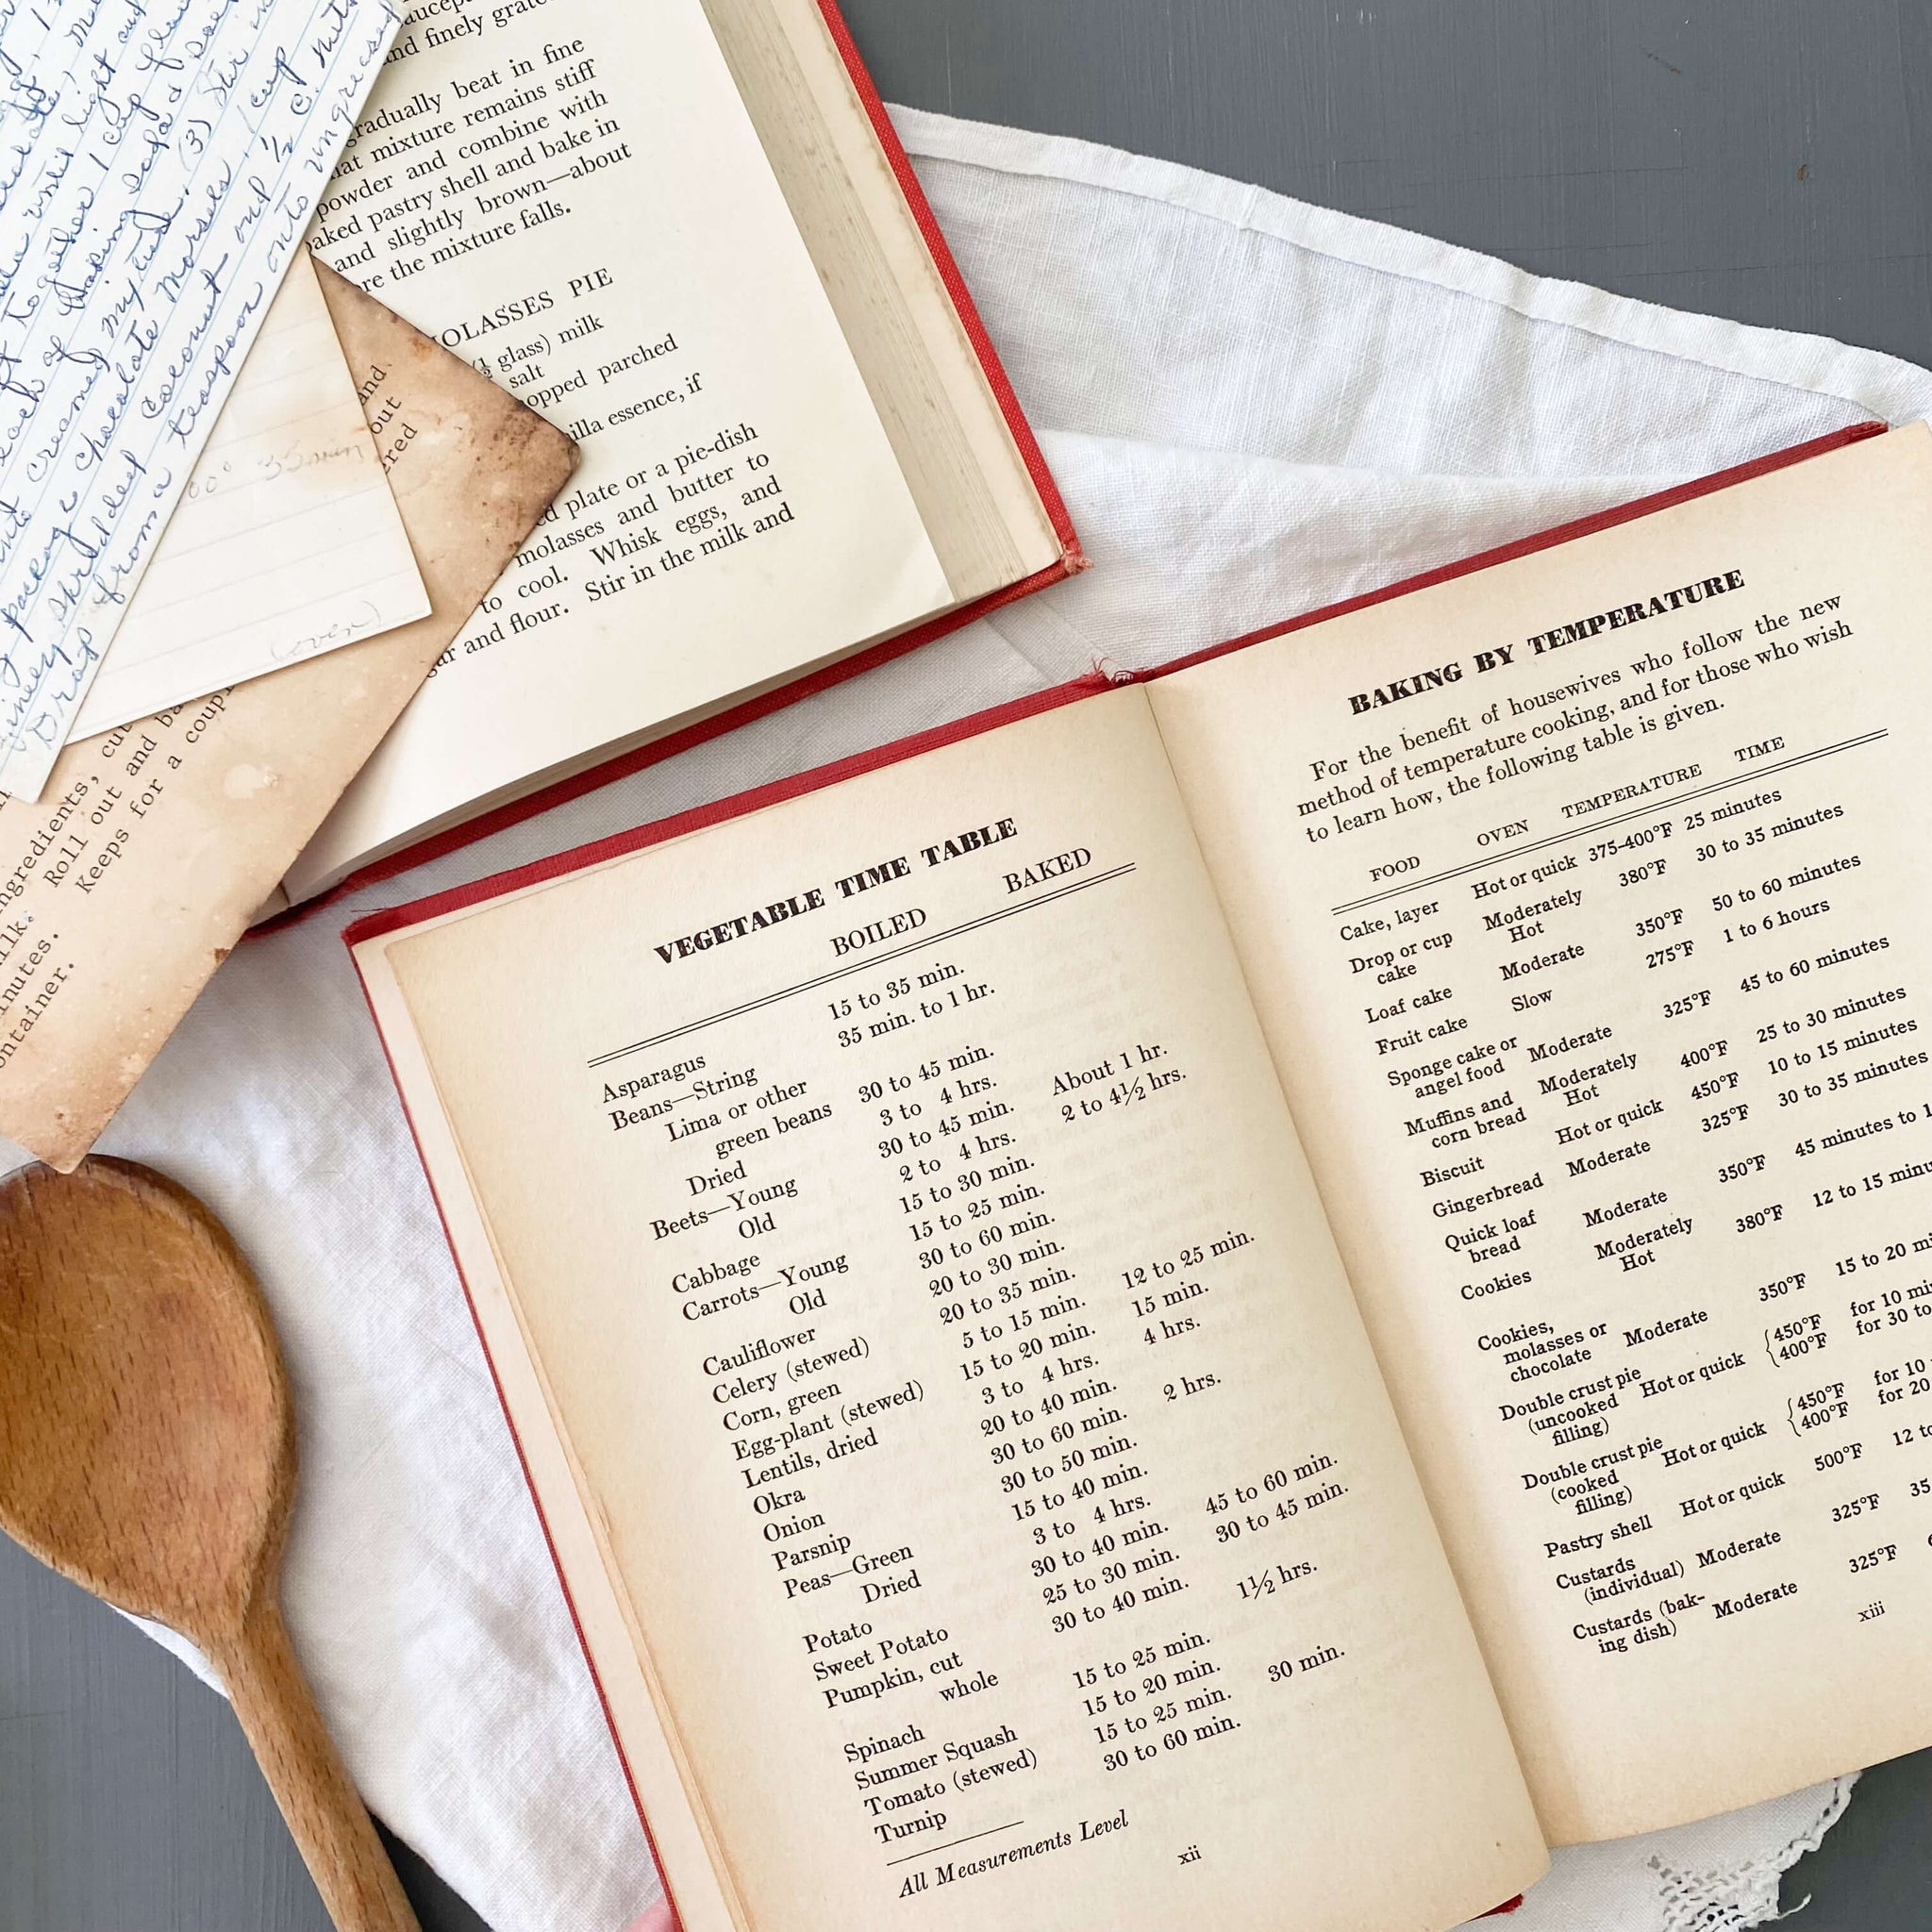 and finely grate
gradually beat in fine
hat mixture remains stiff
powder and combine with
aked pastry shell and bake in
and slightly brown—about
re the mixture falls.
OLASSES PIE
(½ glass) milk
salt
opped parched
illa essence, if
ed plate or a pie-dish
molasses and butter to
to cool. Whisk eggs, and
and flour. Stir in the milk and
until light and
together 1 cup
each of baking soda &
creamed mixture. (3) Stir in
package chocolate morsels, 1 cup
shredded coconut and ½ c. nuts
Drop from a teaspoon onto ungreased
35 min
(over)
and
out
ered
ingredients, cut
Roll out and ba
Keeps for a coupl
ilk.
inutes.
ontainer.
VEGETABLE TIME TABLE
BOILED BAKED
Asparagus 15 to 35 min.
Beans—String 35 min. to 1 hr.
Lima or other
green beans 30 to 45 min.
Dried 3 to 4 hrs. About 1 hr.
Beets—Young 30 to 45 min. 2 to 4½ hrs.
Old 2 to 4 hrs.
Cabbage 15 to 30 min.
Carrots—Young 15 to 25 min.
Old 30 to 60 min.
Cauliflower 20 to 30 min.
Celery (stewed) 20 to 35 min.
Corn, green 5 to 15 min. 12 to 25 min.
Egg-plant (stewed) 15 to 20 min. 15 min.
Lentils, dried 3 to 4 hrs. 4 hrs.
Okra 20 to 40 min.
Onion 30 to 60 min. 2 hrs.
Parsnip 30 to 50 min.
Peas—Green 15 to 40 min.
Dried 3 to 4 hrs.
Potato 30 to 40 min. 45 to 60 min.
Sweet Potato 25 to 30 min. 30 to 45 min.
Pumpkin, cut 30 to 40 min.
whole 1½ hrs.
Spinach 15 to 25 min.
Summer Squash 15 to 20 min.
Tomato (stewed) 15 to 25 min. 30 min.
Turnip 30 to 60 min.
All Measurements Level
xii
BAKING BY TEMPERATURE
For the benefit of housewives who follow the new
method of temperature cooking, and for those who wish
to learn how, the following table is given.
FOOD OVEN TEMPERATURE TIME
Cake, layer Hot or quick 375-400°F 25 minutes
Drop or cup Moderately 380°F 30 to 35 minutes
cake Hot
Loaf cake Moderate 350°F 50 to 60 minutes
Fruit cake Slow 275°F 1 to 6 hours
Sponge cake or
angel food Moderate 325°F 45 to 60 minutes
Muffins and Moderately 400°F 25 to 30 minutes
corn bread Hot
Biscuit Hot or quick 450°F 10 to 15 minutes
Gingerbread Moderate 325°F 30 to 35 minutes
Quick loaf
bread Moderate 350°F 45 minutes to 1
Cookies Moderately 380°F 12 to 15 minu
Hot
Cookies,
molasses or
chocolate Moderate 350°F 15 to 20 mi
Double crust pie
(uncooked Hot or quick {450°F for 10 mi
filling) 400°F for 30 to
Double crust pie
(cooked Hot or quick {450°F for 10
filling) 400°F for 20
Pastry shell Hot or quick 500°F 12 to
Custards
(individual) Moderate 325°F 35
Custards (bak-
ing dish) Moderate 325°F
xiii